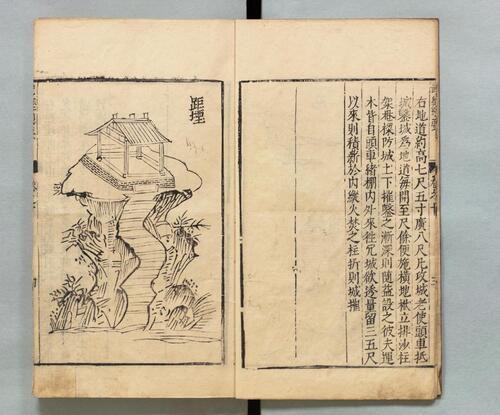 右地道約高七尺五寸廣八尺凡攻城者使頭車抵
城鑿城為地道每開至尺餘便施橫地栿立排沙柱
架巷探防城土下摧鑿之漸深則隨益設之役夫運
木皆自頭車緒棚內外來往冗城欲透量留三五尺
以來則積薪於內縱火焚之柱折則城摧
距堙